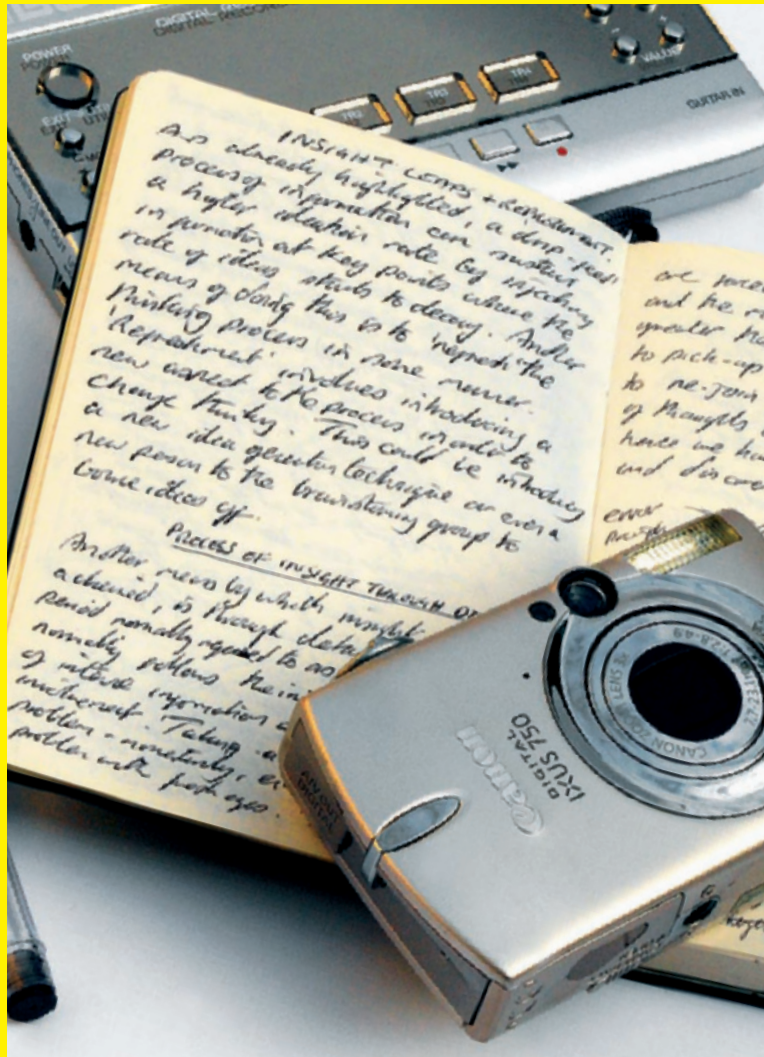 DIGITAL RECO
POWER
EXIT
VALUE
GUITAR IN
TR2
TR3
TR4
INSIGHT LEAPS + REFRESHMENT.
As already highlighted, a drip-feed
process of information can sustain
a higher ideation rate by injecting
information at key points where the
rate of ideas starts to decay. Another
means of doing this is to 'refresh' the
thinking process in some manner.
'Refreshment' involves introducing a
new aspect to the process in order to
change thinking. This could be introducing
a new idea generation technique or even a
new person to the brainstorming group to
bounce ideas off.
PROCESS OF INSIGHT THROUGH
Another means by which insight
achieved, is through
period normally required to
normally follows the
of intense information
involvement. Taking a
problem - momentarily,
problem with fresh eyes.
are
and the
greater
to pick-up
to re-join
of thoughts
hence we
and
error
Canon
DIGITAL
IXUS 750
CANON ZOOM LENS 3x
1:2.8-4.9